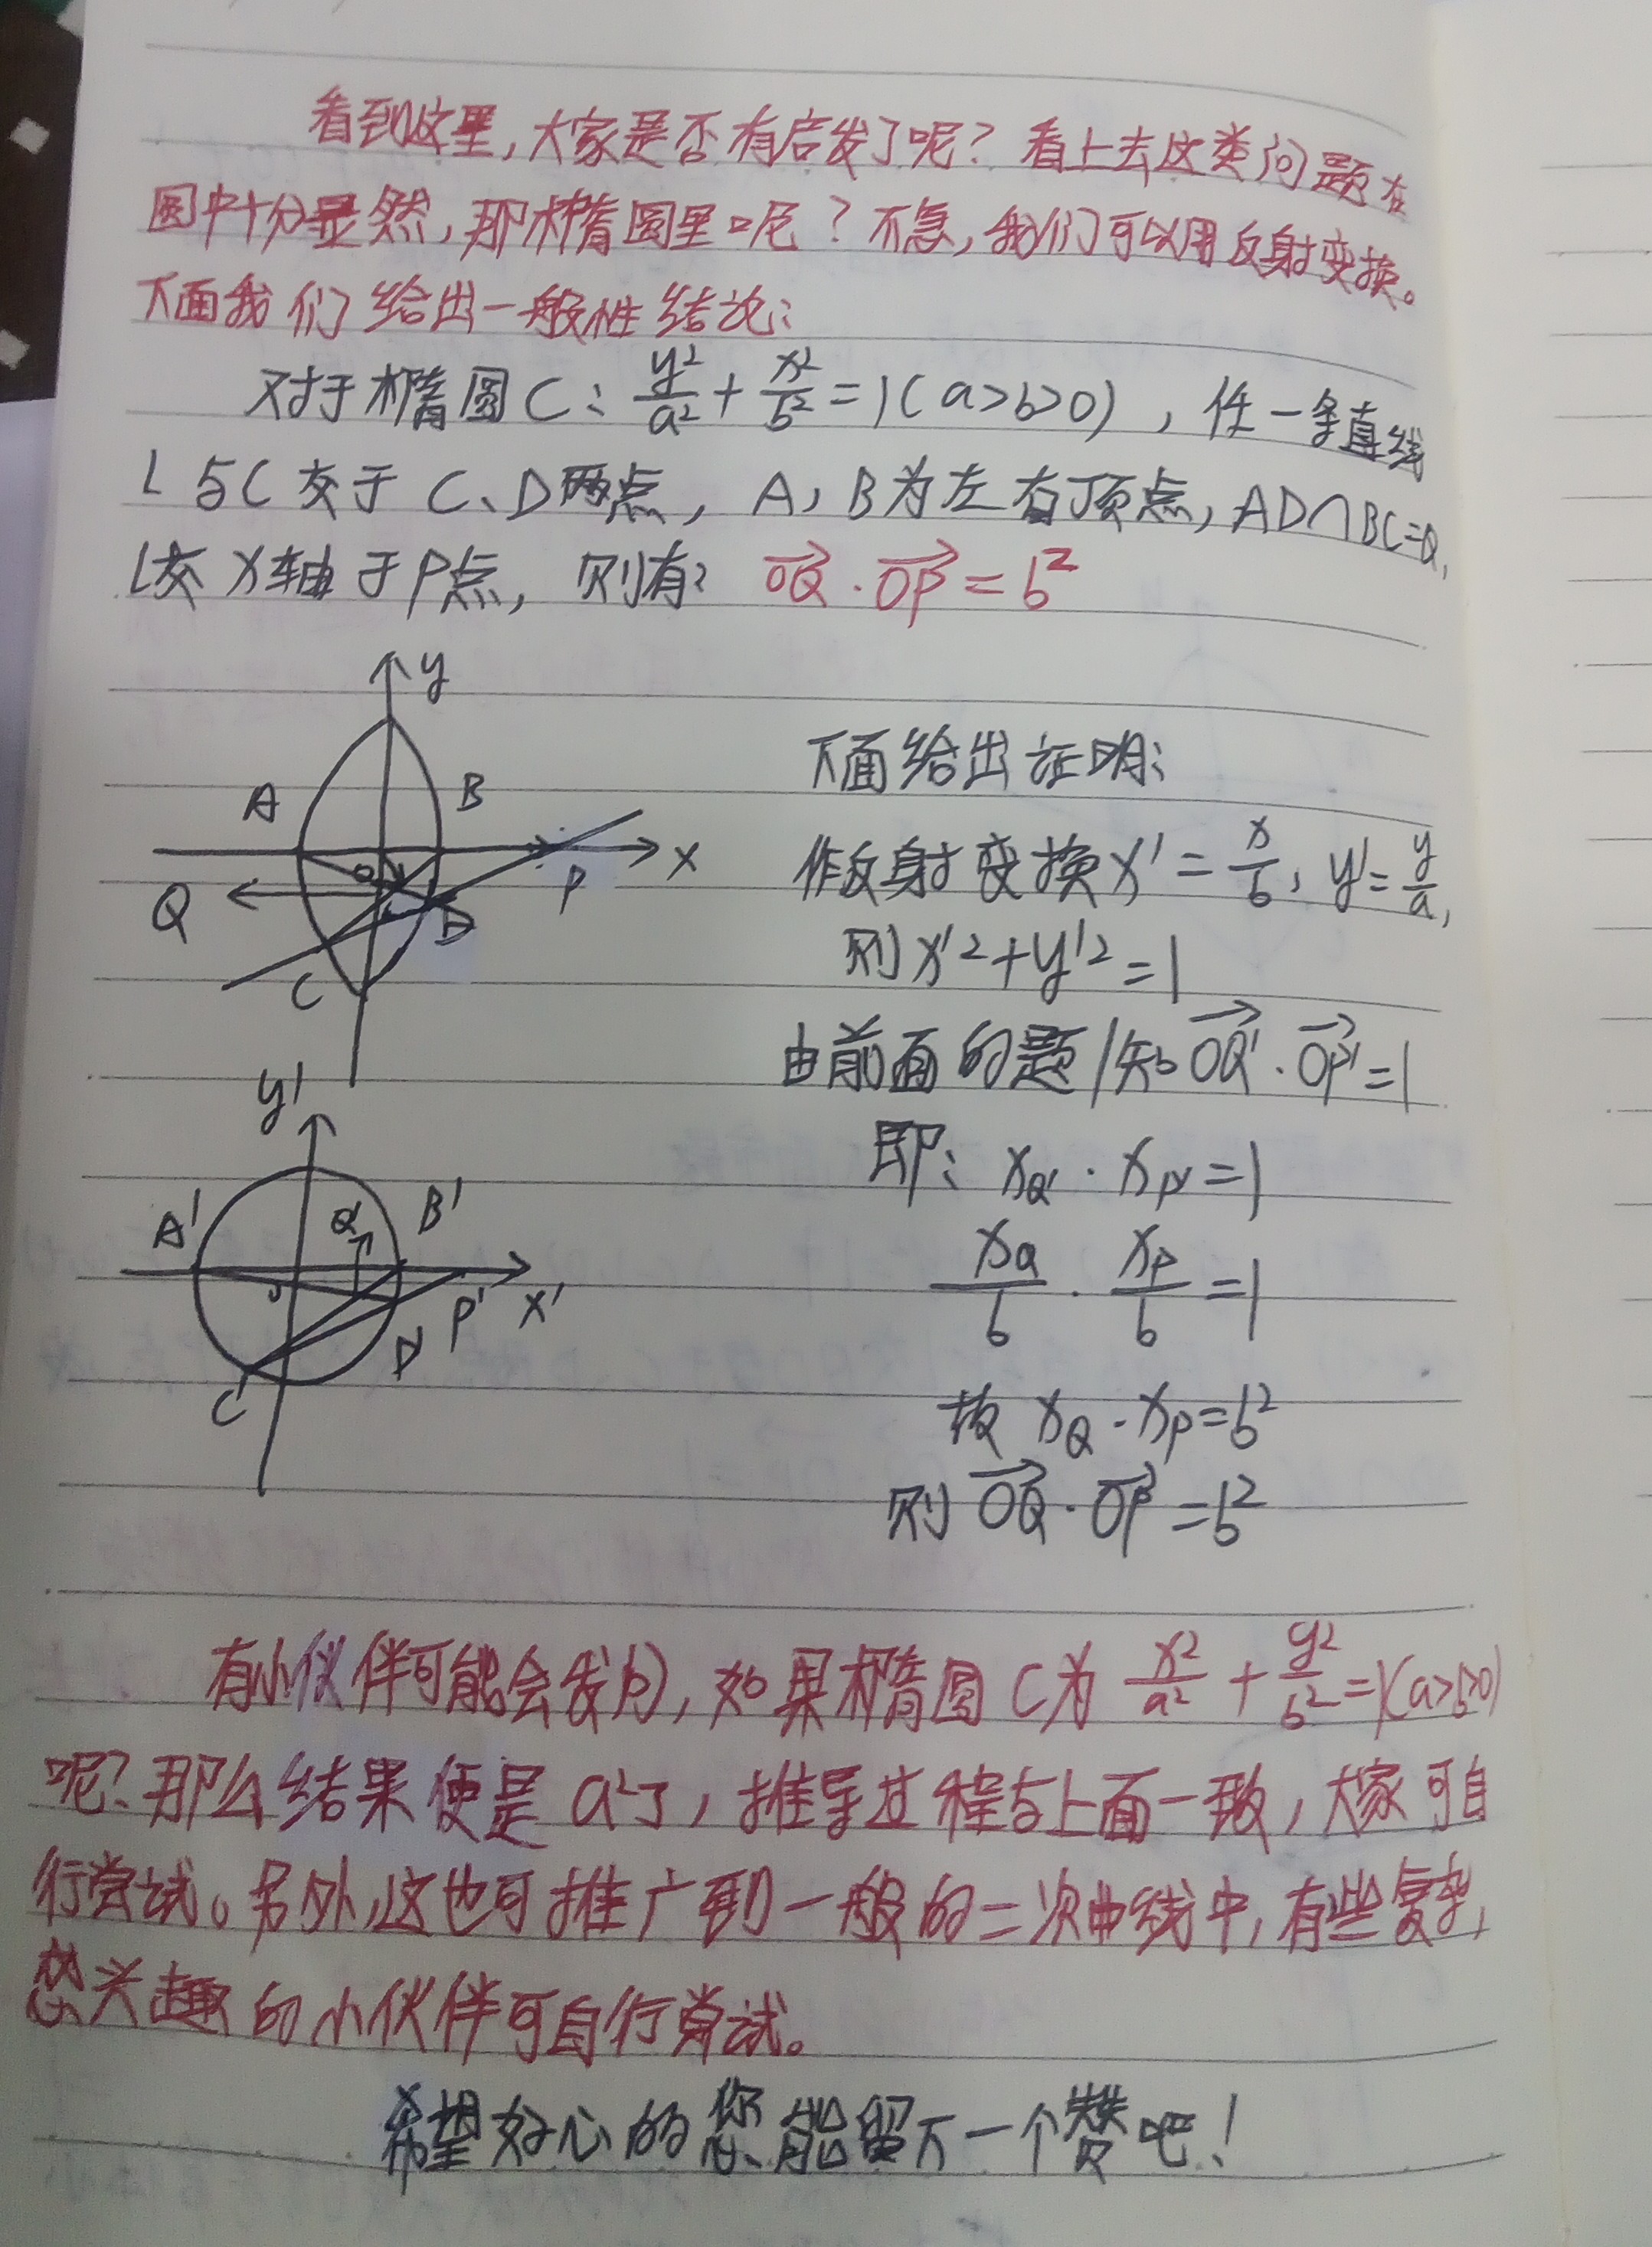 看到这里,大家是否有启发了呢?看上去这类问题在
圆中十分显然,那椭圆里呢?不急,我们可以用反射变换。
下面我们给出一般性结论:
对于椭圆C: y²/a² + x²/b² = 1(a>b>0),任一条直线
l与C交于C、D两点,A,B为左右顶点,AD∩BC=Q,
l交x轴于P点,则有: OQ→·OP→=b²
y
A
B
x
O
P
Q
D
C
下面给出证明:
作反射变换x'=x/b, y'=y/a,
则x'²+y'²=1
由前面的题1知OQ'→·OP'→=1
即: xQ'·xP'=1
xQ/b · xP/b =1
故 xQ·xP=b²
则 OQ→·OP→=b²
y'
A'
Q'
B'
x'
P'
D'
C'
有小伙伴可能会发问,如果椭圆C为 x²/a² + y²/b² =1(a>b>0)
呢?那么结果便是a²了,推导过程与上面一致,大家可自
行尝试。另外,这也可推广到一般的二次曲线中,有些复杂,
感兴趣的小伙伴可自行尝试。
希望好心的您能留下一个赞吧!